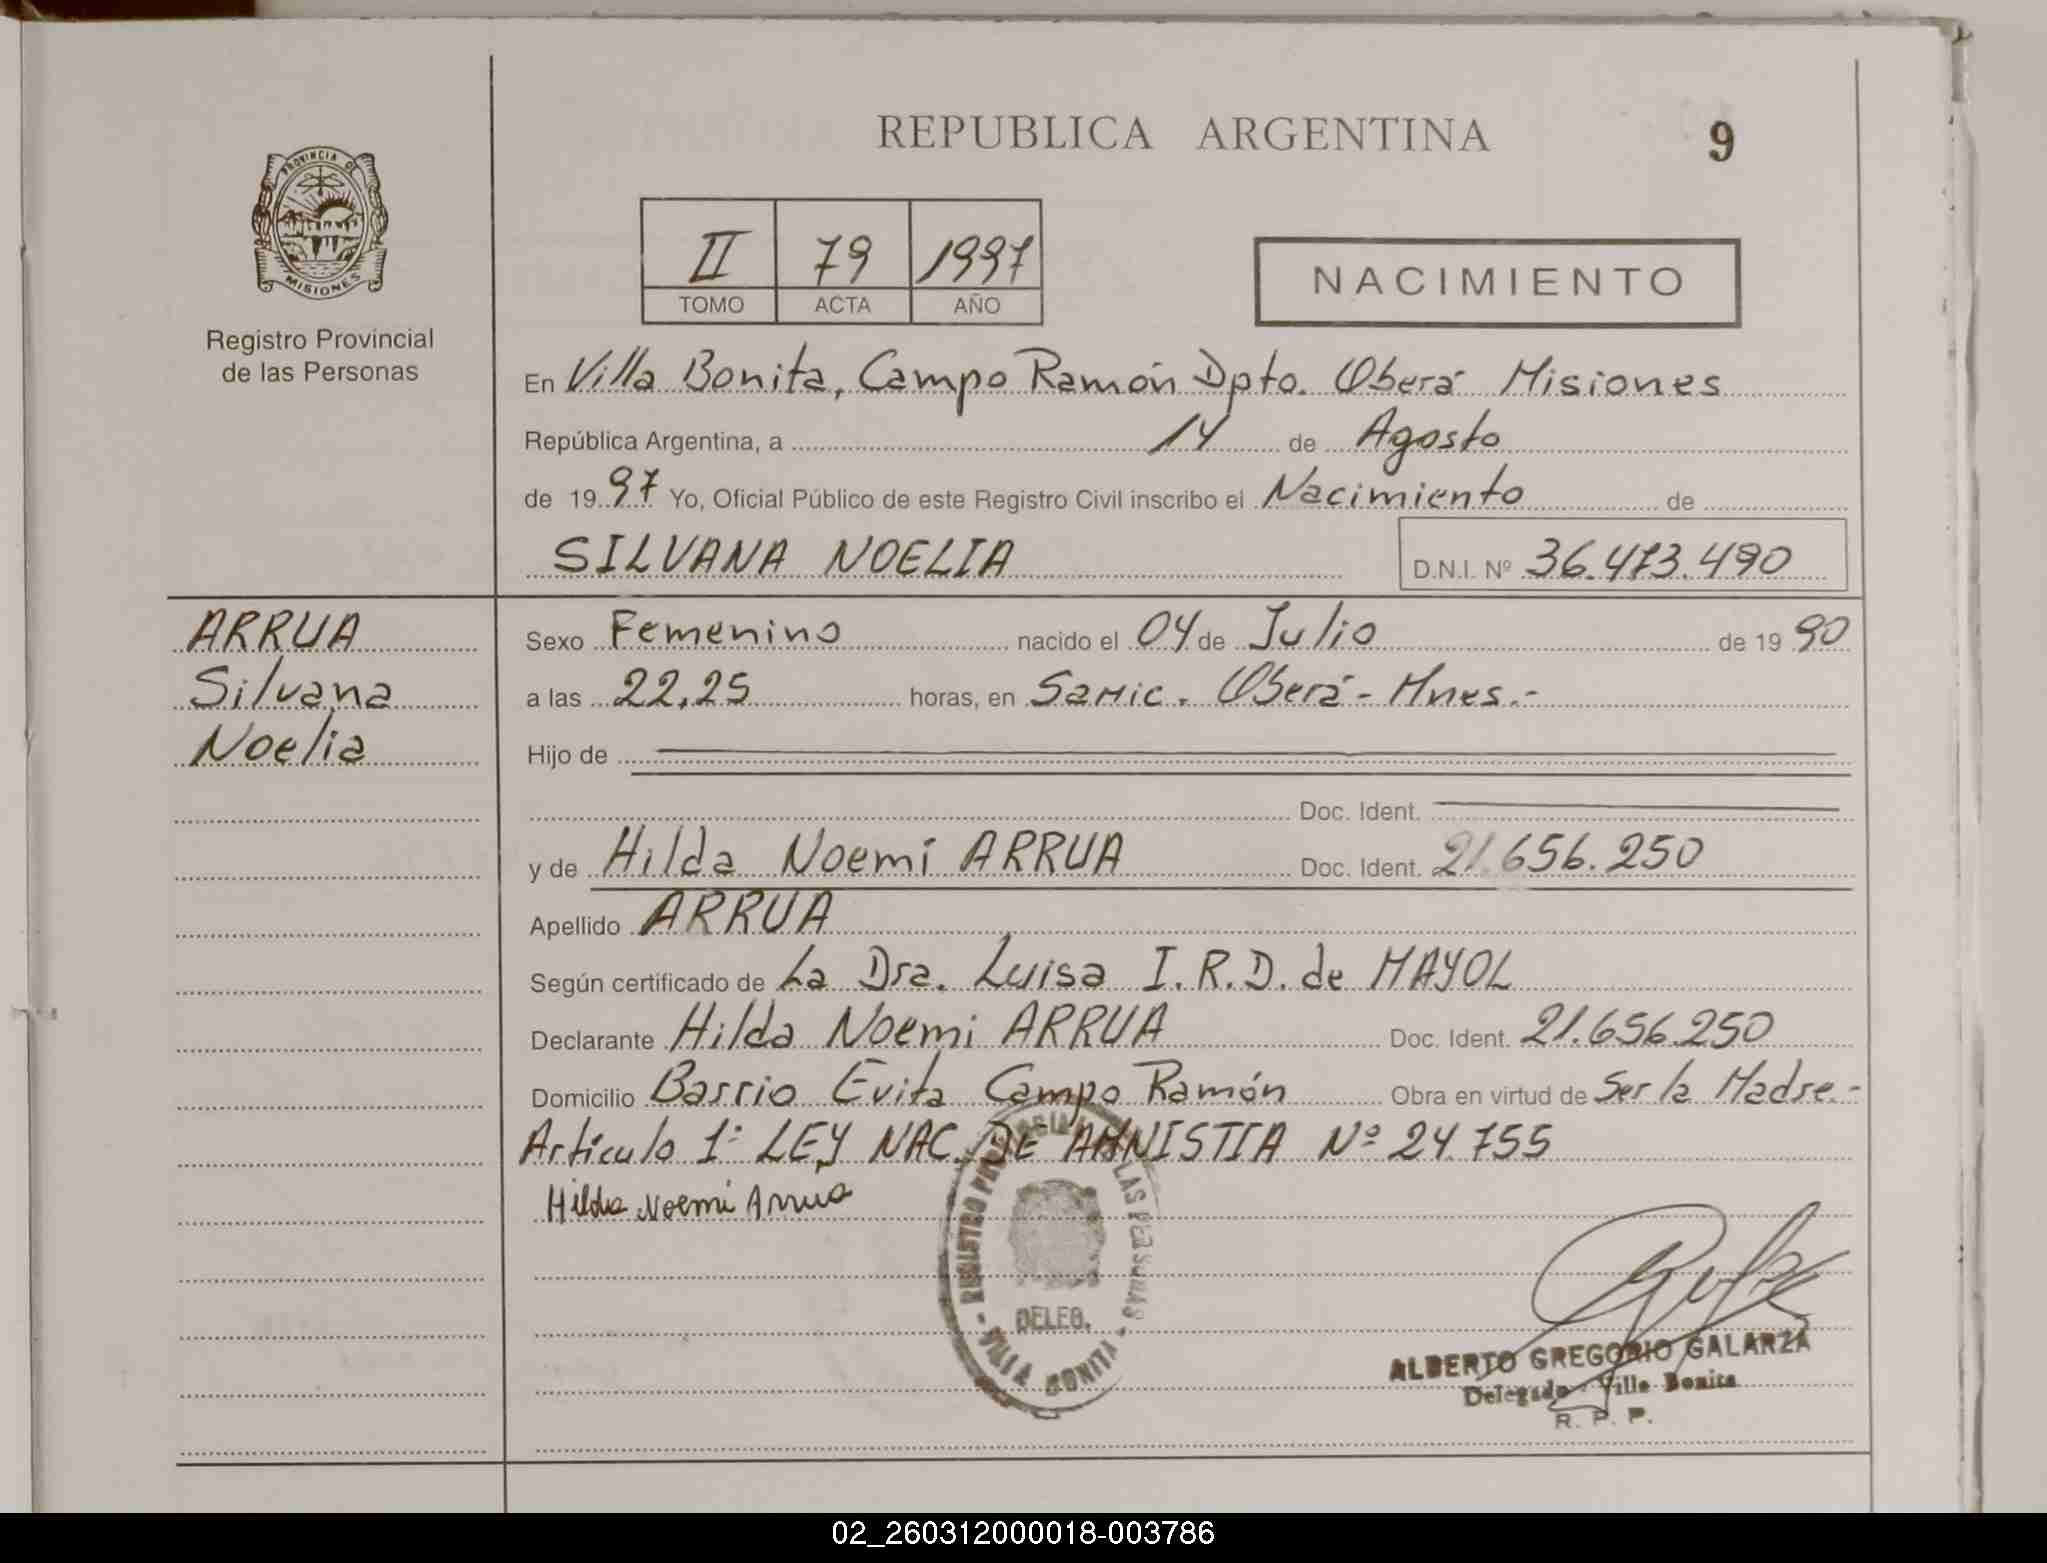 PROVINCIA DE
MISIONES
Registro Provincial
de las Personas
REPUBLICA ARGENTINA
9
II 79 1997
TOMO ACTA AÑO
NACIMIENTO
En Villa Bonita, Campo Ramón Dpto. Oberá Misiones
República Argentina, a 14 de Agosto
de 1997 Yo, Oficial Público de este Registro Civil inscribo el Nacimiento de
SILVANA NOELIA D.N.I. Nº 36.473.490
ARRUA
Silvana
Noelia
Sexo Femenino nacido el 04 de Julio de 1990
a las 22,25 horas, en SaMic. Oberá - Mnes.-
Hijo de
Doc. Ident.
y de Hilda Noemí ARRUA Doc. Ident. 21.656.250
Apellido ARRUA
Según certificado de La Dra. Luisa I.R.D. de MAYOL
Declarante Hilda Noemi ARRUA Doc. Ident. 21.656.250
Domicilio Barrio Evita Campo Ramón Obra en virtud de Ser la Madre.-
Artículo 1º LEY NAC. DE AMNISTIA Nº 24.755
Hilda Noemi Arrua
REGISTRO LAS PERSONAS
DELEG.
- VILLA BONITA -
ALBERTO GREGORIO GALARZA
Delegado - Villa Bonita
R. P. P.
02_260312000018-003786